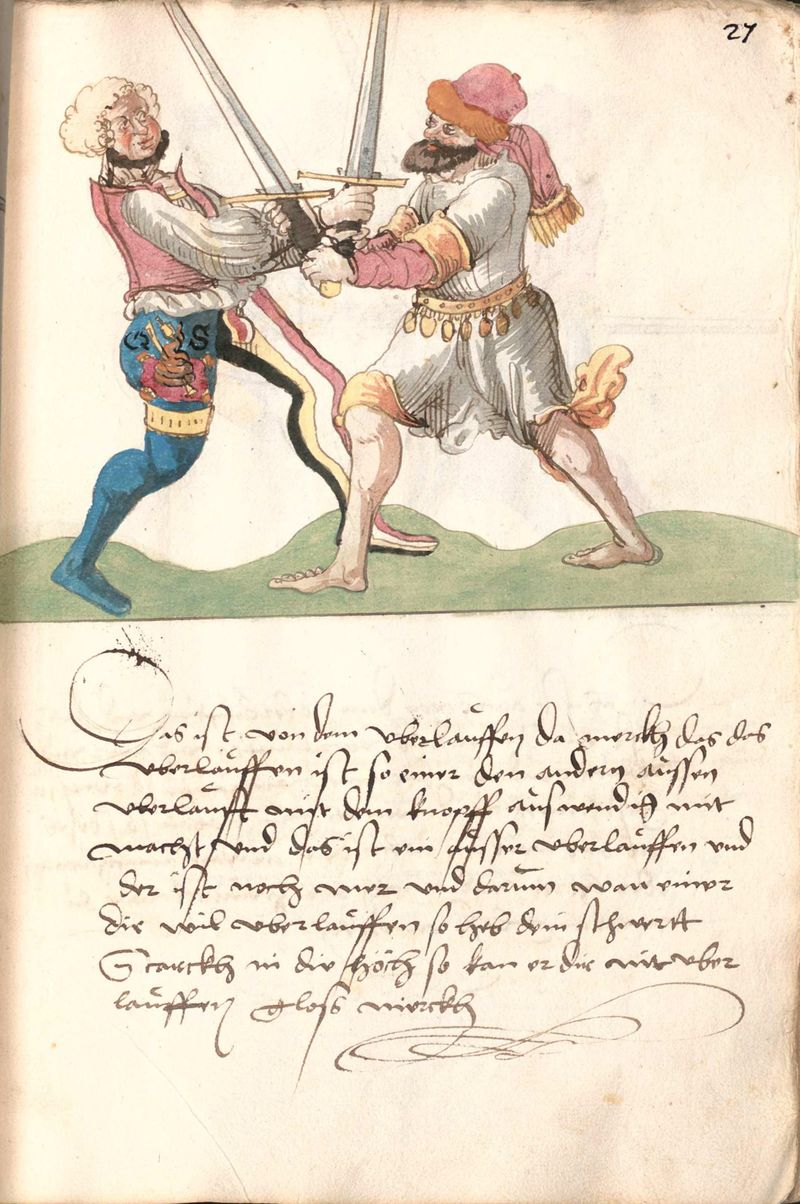 27
G S
Das ist von dem vberlauffen da merckh das das
vberlauffen ist so einer den andern aussen
vberlaufft mit dem knopff auswendig mit
macht vnd das ist ein ausser vberlauffen vnd
der ist noch mer vnd darum wan einer
dir wil vberlauffen so heb dein schwertt
Starckh in die höch so kan er dir nit vber
lauffen gloss merckh